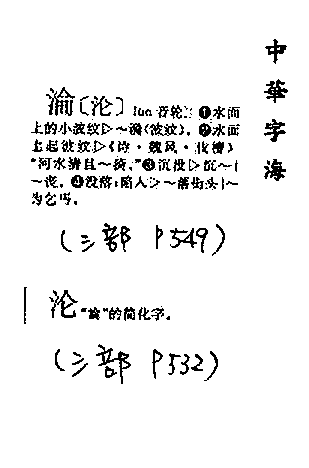 中華字海
淪〔沦〕lún 音轮。①水面
上的小波纹▷～漪(波纹)。②水面
上起波纹▷《诗·魏风·伐檀》
“河水清且～猗。”③沉没▷沉～|
～丧。④没落;陷入▷～落街头|～
为乞丐。
(氵部 P549)
沦 “淪”的简化字。
(氵部 P532)